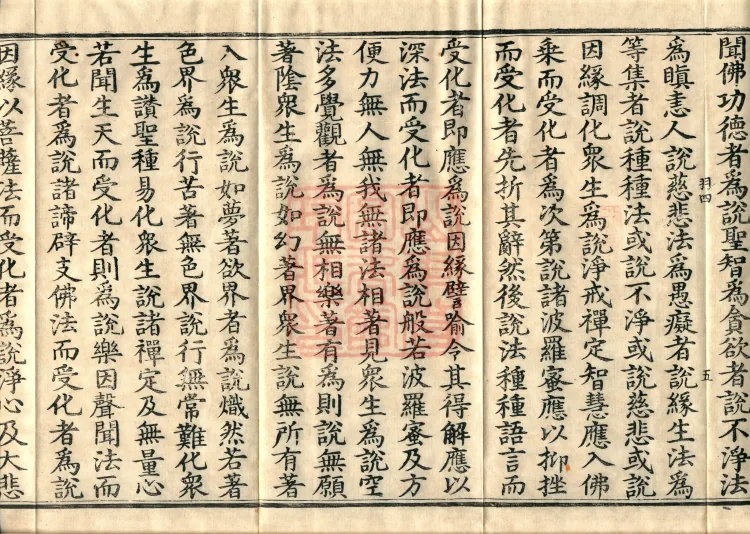 聞佛功德者爲說聖智爲貪欲者說不淨法
爲瞋恚人說慈悲法爲愚癡者說緣生法爲
等集者說種種法或說不淨或說慈悲或說
因緣調化衆生爲說淨戒禪定智慧應入佛
乘而受化者爲次第說諸波羅蜜應以抑挫
而受化者先折其辭然後說法種種語言而
受化者即應爲說因緣譬喻令其得解應以
深法而受化者即應爲說般若波羅蜜及方
便力無人無我無諸法相著見衆生爲說空
法多覺觀者爲說無相樂著有爲則說無願
著陰衆生爲說如幻著界衆生說無所有著
入衆生爲說如夢著欲界者爲說熾然若著
色界爲說行苦著無色界說行無常難化衆
生爲讚聖種易化衆生說諸禪定及無量心
若聞生天而受化者則爲說樂因聲聞法而
受化者爲說諸諦辟支佛法而受化者爲說
因緣以菩薩法而受化者爲說淨心及大悲
羽四
五